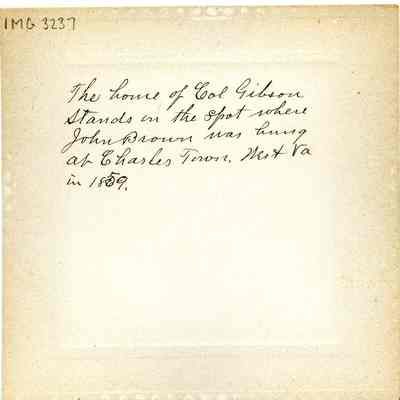 IMG 3237
The home of Col Gibson
Stands on the spot where
John Brown was hung
at Charles Town, West Va
in 1859.